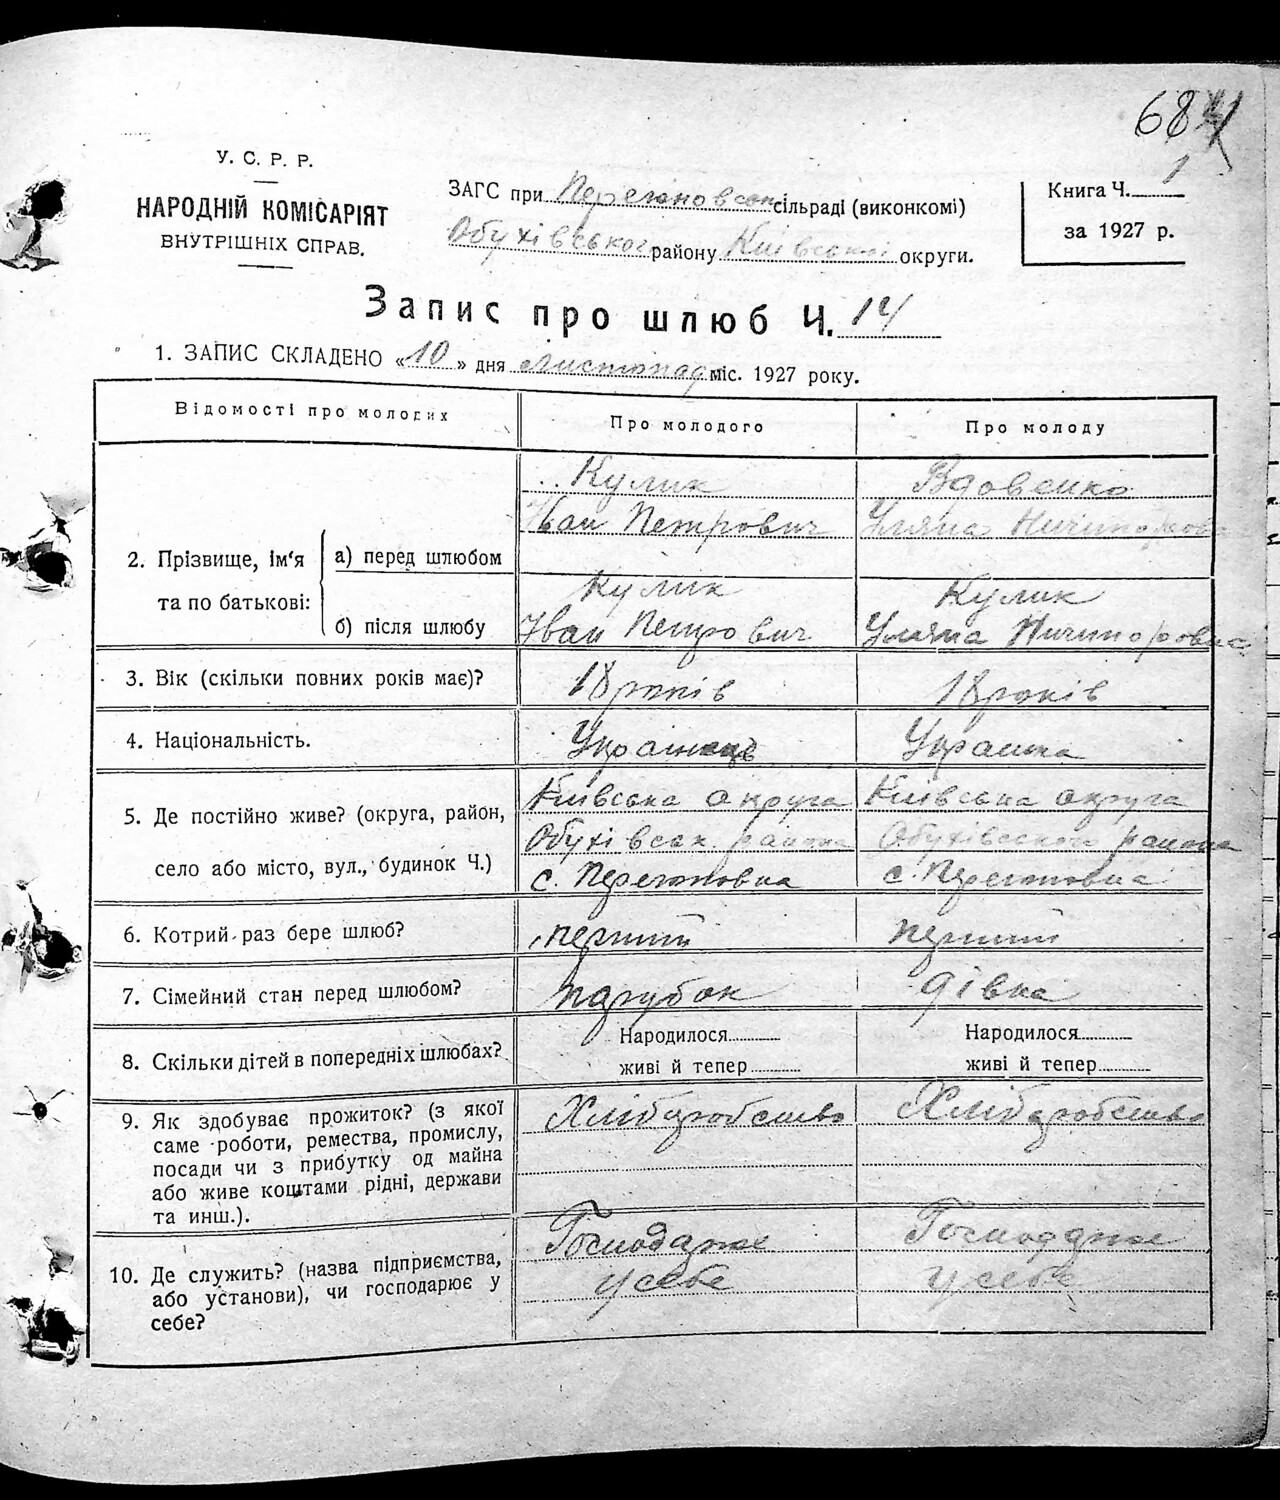 684
У. С. Р. Р.
НАРОДНІЙ КОМІСАРІЯТ
ВНУТРІШНІХ СПРАВ.
ЗАГС при Перегоновськ сільраді (виконкомі)
Обухівського району Київської округи.
Книга Ч. 1
за 1927 р.
Запис про шлюб Ч. 14
1. ЗАПИС СКЛАДЕНО «10» дня листопад міс. 1927 року.
Відомості про молодих
Про молодого
Про молоду
2. Прізвище, ім'я та по батькові:
а) перед шлюбом
Кулик
Іван Петрович
Вдовенко
Уляна Ничипоровна
б) після шлюбу
Кулик
Іван Петрович
Кулик
Уляна Ничипоровна
3. Вік (скільки повних років має)?
18 років
18 років
4. Національність.
Українець
Украінка
5. Де постійно живе? (округа, район,
село або місто, вул., будинок Ч.)
Київська округа
Обухівськ. района
с. Перегоновка
Київська округа
Обухівського района
с. Перегоновка
6. Котрий раз бере шлюб?
перший
перший
7. Сімейний стан перед шлюбом?
парубок
дівка
8. Скільки дітей в попередніх шлюбах?
Народилося
живі й тепер
Народилося
живі й тепер
9. Як здобуває прожиток? (з якої
саме роботи, ремества, промислу,
посади чи з прибутку од майна
або живе коштами рідні, держави
та инш.).
Хліборобство
Хліборобство
10. Де служить? (назва підприємства,
або установи), чи господарює у
себе?
Господарює
у себе
Господарює
у себе